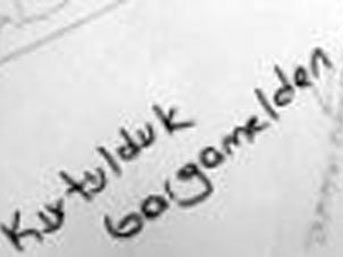 Kurtulduk
bargamelden